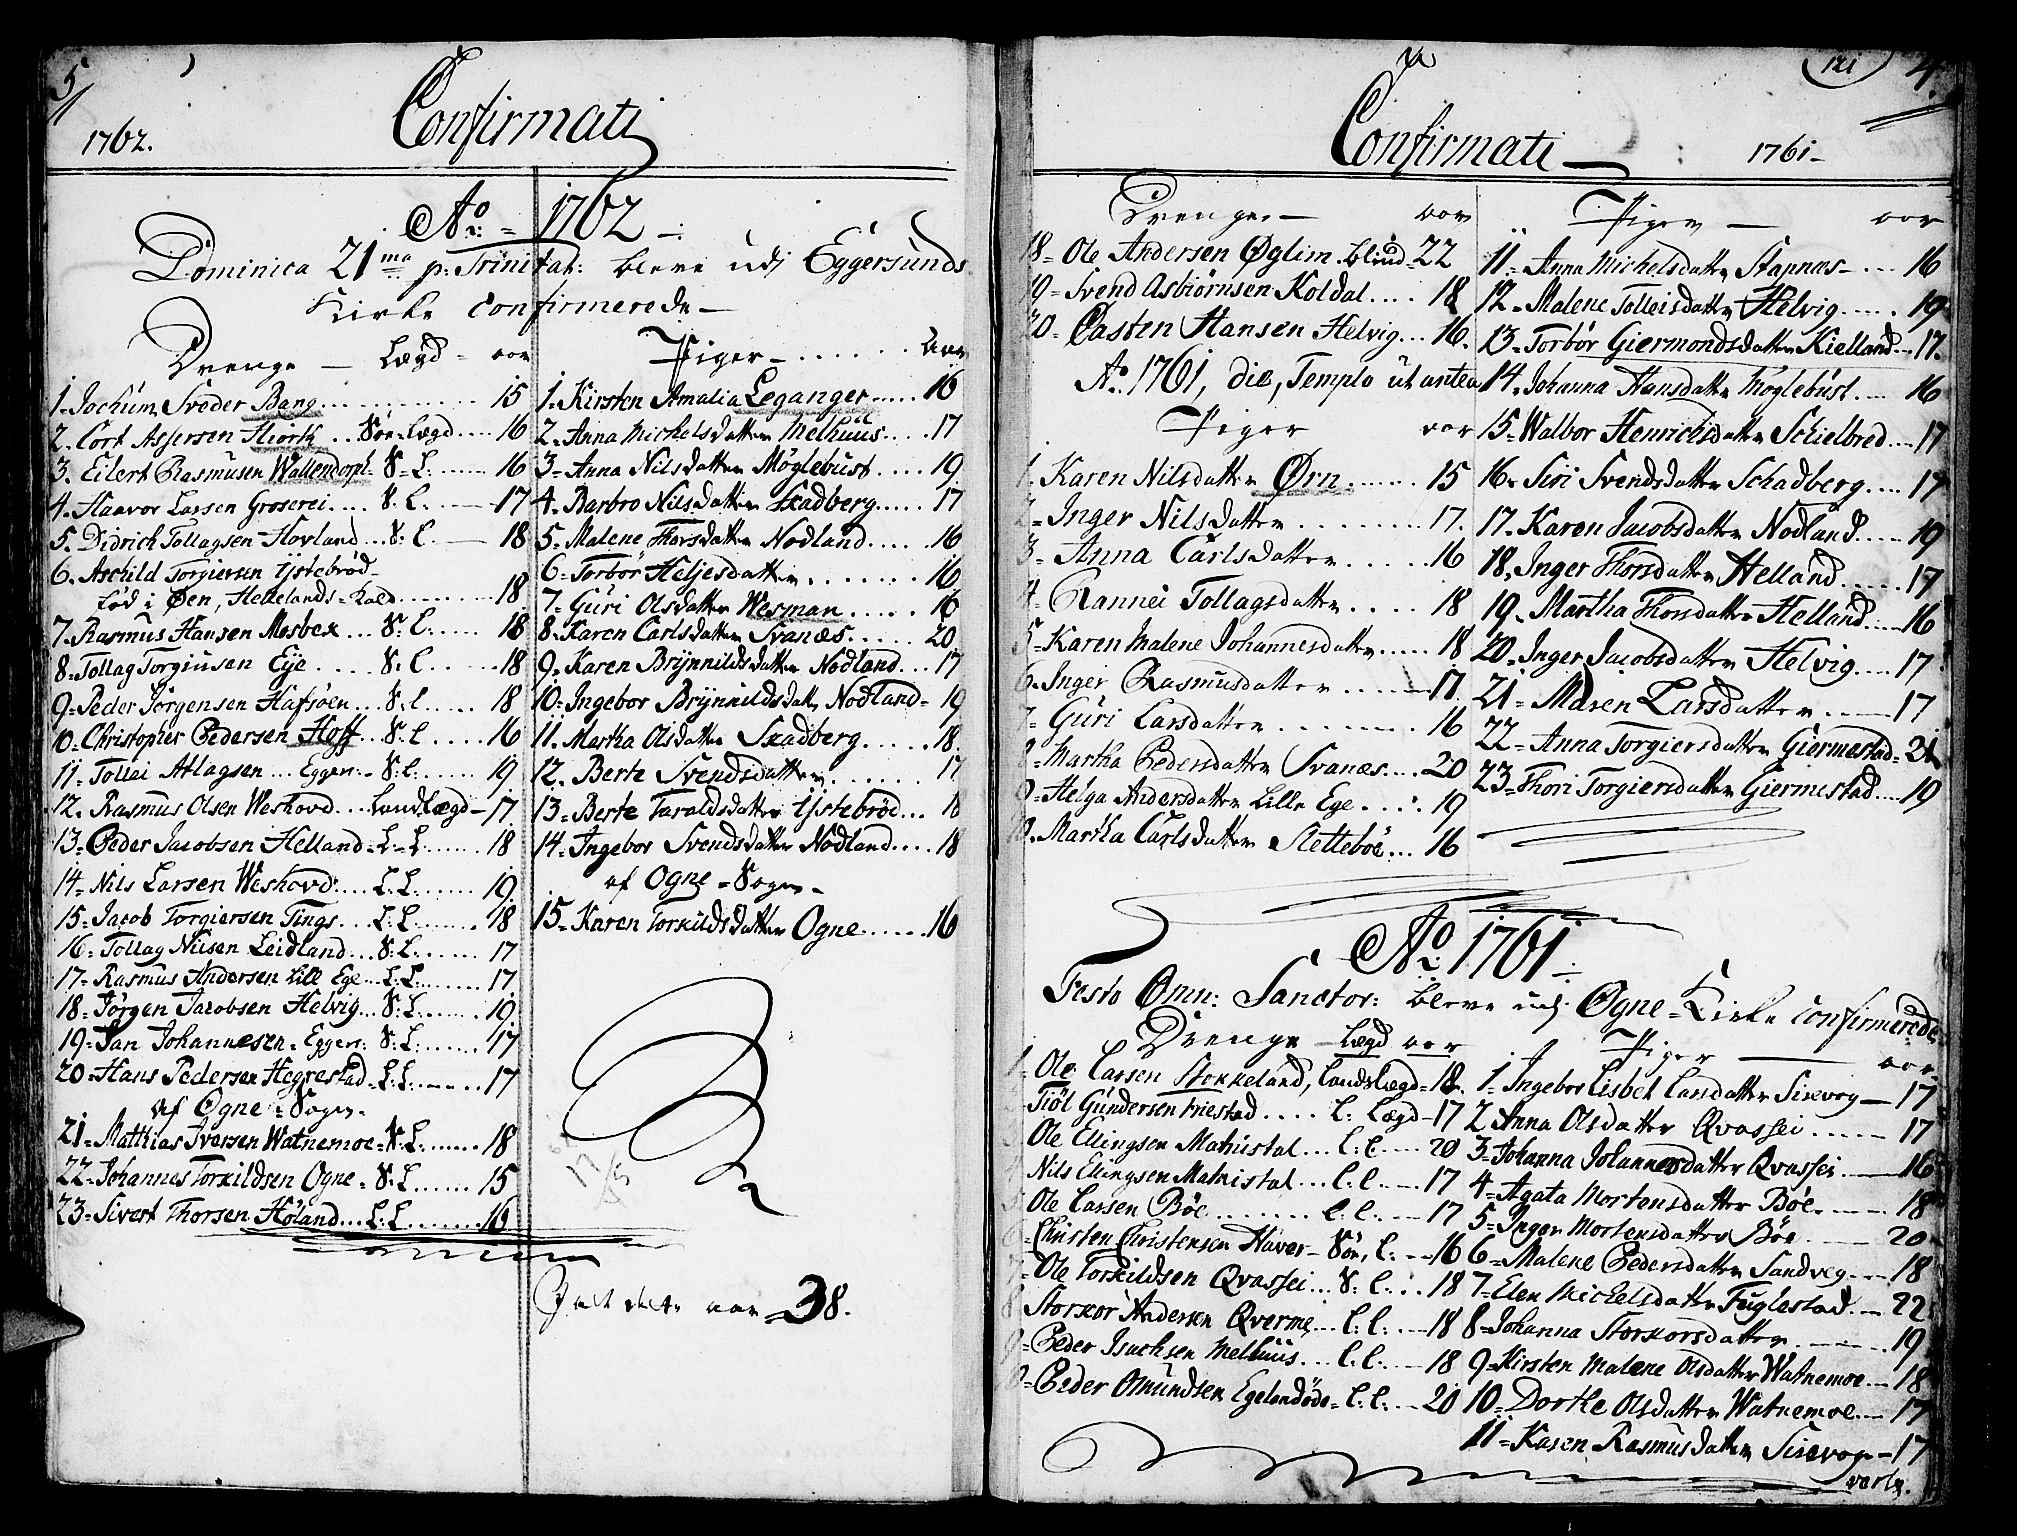 5
1762.
Confirmati
Ao: = 1762
Dominica 21ma p: Trinitat: bleve udj Eggersunds
Kirke confirmerede
Drenge — Lægd - aar
1. Jochum Sveder Bang ... 15
2. Cort Assersen Hiorth .. Sør-Lægd ... 16
3. Eilert Rasmusen Wallendorph S= L: ... 16
4. Haavor Larsen Groserei .... S. L. — 17
5. Didrich Tollagsen Hovland ... S: L. — 18
6. Aschild Torgiersen Ystebrød
fød i Øen, Hellelands-Kald ... 18
7. Rasmus Hansen Mosbex ... S: L: ... 18
8. Tollag Torgiusen Eije .... S: L ... 18
9. Peder Jørgensen Hafsøen ... S: L ... 18
10. Christopher Pedersen Hoff ... S: L ... 16
11. Tollei Atlagsen ... Eggers: S: L: ... 19
12. Rasmus Olsen Weshovd ... Landlægd - 17
13. Peder Jacobsen Helland - L = L: ... 18
14. Nils Larsen Weshovd: ... L: L: ... 19
15. Jacob Torgiersen Tings ... L: L. ... 18
16. Tollag Nilsen Leidland ... S: L. ... 17
17. Rasmus Andersen Lille Ege ... L: L. ... 17
18. Jørgen Jacobsen Helvig ... S: L. ... 19
19. Jan Johannesen - Eggers: S: L. ... 17
20. Hans Pedersen Hegrestad - L: L: ... 17
af Ogne = Sogn
21. Matthias Iversen Watnemoe - S: L. ... 18
22. Johannes Torkildsen Ogne - S: L ... 15
23. Sivert Thorsen Høland ... L: L. ... 16
Piger - ... aar
1. Kirsten Amalia Leganger ... 16
2. Anna Michelsdatter Melhuus ... 17
3. Anna Nilsdatter Møglebust ... 19
4. Barbro Nilsdatter Skadberg ... 17
5. Malene Thorsdatter Nodland ... 16
6. Torbør Heljesdatter ... 16
7. Güri Olsdatter Wesman ... 16
8. Karen Carlsdatter Svanæs ... 20
9. Karen Brynnildsdatter Nodland ... 17
10. Ingebor Brynnildsdatt Nodland - 19
11. Martha Olsdatter Skadberg ... 18.
12. Berte Svendsdatter ... 17
13. Berte Taraldsdatter Ystebrød ... 18
14. Ingebor Svendsdatter Nodland ... 18
af Ogne = Sogn
15. Karen Torkildsdatter Ogne ... 16
dette aar = 38.
121 4.
Confirmati
1761
Drenge — aar
18 = Ole Andersen Øglim. blind = 22
19 = Svend Asbiørnsen Koldal .... 18
20 = Casten Hansen Helvig ... 16.
Ao. 1761, die, Templo ut antea
Piger aar
1. Karen Nilsdatter Ørn ... 15
2 = Inger Nilsdatter ... 17.
3 = Anna Carlsdatter ... 16
4 = Rannei Tollagsdatter ... 18
5 = Karen Malene Johannesdatter ... 18
6. Inger Rasmusdatter ... 17.
7 = Güri Larsdatter ... 16
8 = Martha Pedersdatter Svanæs ... 20
9 = Helga Andersdatter Lille Ege ... 19
10. Martha Carlsdatter Slettebøe ... 16
Piger — aar
11 = Anna Michelsdatter Stapnæs ... 16
12 = Malene Tolleisdatter Helvig ... 19
13 = Torbør Giermondsdatter Kielland ... 17.
14 = Johanna Hansdatter Møglebust ... 16
15 = Walbor Henrichsdatter Schielbred ... 17
16 = Siri Svendsdatter Schadberg ... 17
17. Karen Jacobsdatter Nodland ... 19
18. Inger Thorsdatter Helland ... 17
19. Martha Thorsdatter Helland ... 16
20 = Inger Jacobsdatter Helvig ... 17
21 = Maren Larsdatter ... 17
22 = Anna Torgiersdatter Giermestad = 21
23 = Thori Torgiersdatter Giermestad ... 19
Ao: 1761
Festo Omn: Sanctor: bleve udj Ogne - Kirke confirmerede
Drenge Lægd aar
1 = Ole Larsen Stokkeland, Landslægd = 18.
Tiøl Gundersen Hiestad .... L: Lægd - 17
Ole Ellingsen Mathistal ... L: L — 20
Nils Ellingsen Mathistal ... L: L. — 17
Ole Larsen Bøe ... L: L: — 17
6 = Christen Christensen Haver - Sør, L: — 16
7 = Ole Torkildsen Qvassei ... S: L: ... 18
8 Storkor Andersen Qverme ... L: L: ... 18
9 = Peder Isachsen Melhuus ... L: L: — 18
Peder Omundsen Egelandsda = L: L: ... 20
Piger — aar
1 = Ingebor Lisbet Larsdatter Sirevog — 17
2 Anna Olsdatter Qvassei ... 17
3 = Johanna Johannesdatter Qvassei — 16
4 = Agata Mortensdatter Bøe ... 18
5 = Inger Mortensdatter Bøe. — 20
6 = Malene Pedersdatter Sandveg ... 18
7 = Elen Michelsdatter Fuglestad ... 22
8 = Johanna Storkorsdatter ... 19
9 = Kirsten Malene Olsdatter Watnemoe ... 18
10 = Dorthe Olsdatter Watnemoe ... 17
11 = Karen Rasmusdatter Sirevog - 17
verte.